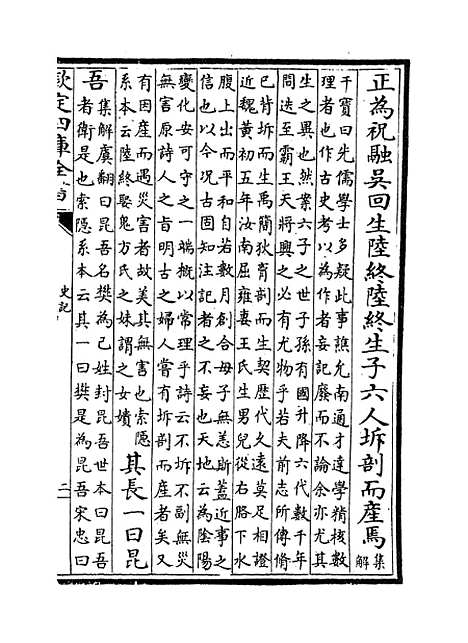 正為祝融吳回生陸終陸終生子六人坼剖而產焉集解
干寶曰先儒學士多疑此事譙允南通才達學精核數
理者也作古史考以為作者妄記廢而不論余亦尤其
生之異也然案六子之世子孫有國升降六代數千年
問迭至霸王天將興之必有尤物乎若夫前志所傳脩
已背坼而生禹簡狄胷剖而生契歷代久遠莫足相證
近魏黃初五年汝南屈雍妻王氏生男兒從右胳下水
腹上出而平和自若數月創合母子無恙斯蓋近事之
信也以今況古固知注記者之不妄也天地云為陰陽
變化安可守之一端概以常理乎詩云不坼不副無災
無害原詩人之旨明古之婦人嘗有坼剖而產者矣又
有因產而遇災害者故美其無害也索隱
系本云陸終娶鬼方氏之妹謂之女嬇
其長一曰昆
吾
集解虞翻曰昆吾名樊為己姓封昆吾世本曰昆吾
者衛是也索隱系本云其一曰樊是為昆吾宋忠曰
欽定四庫全書
史記
二